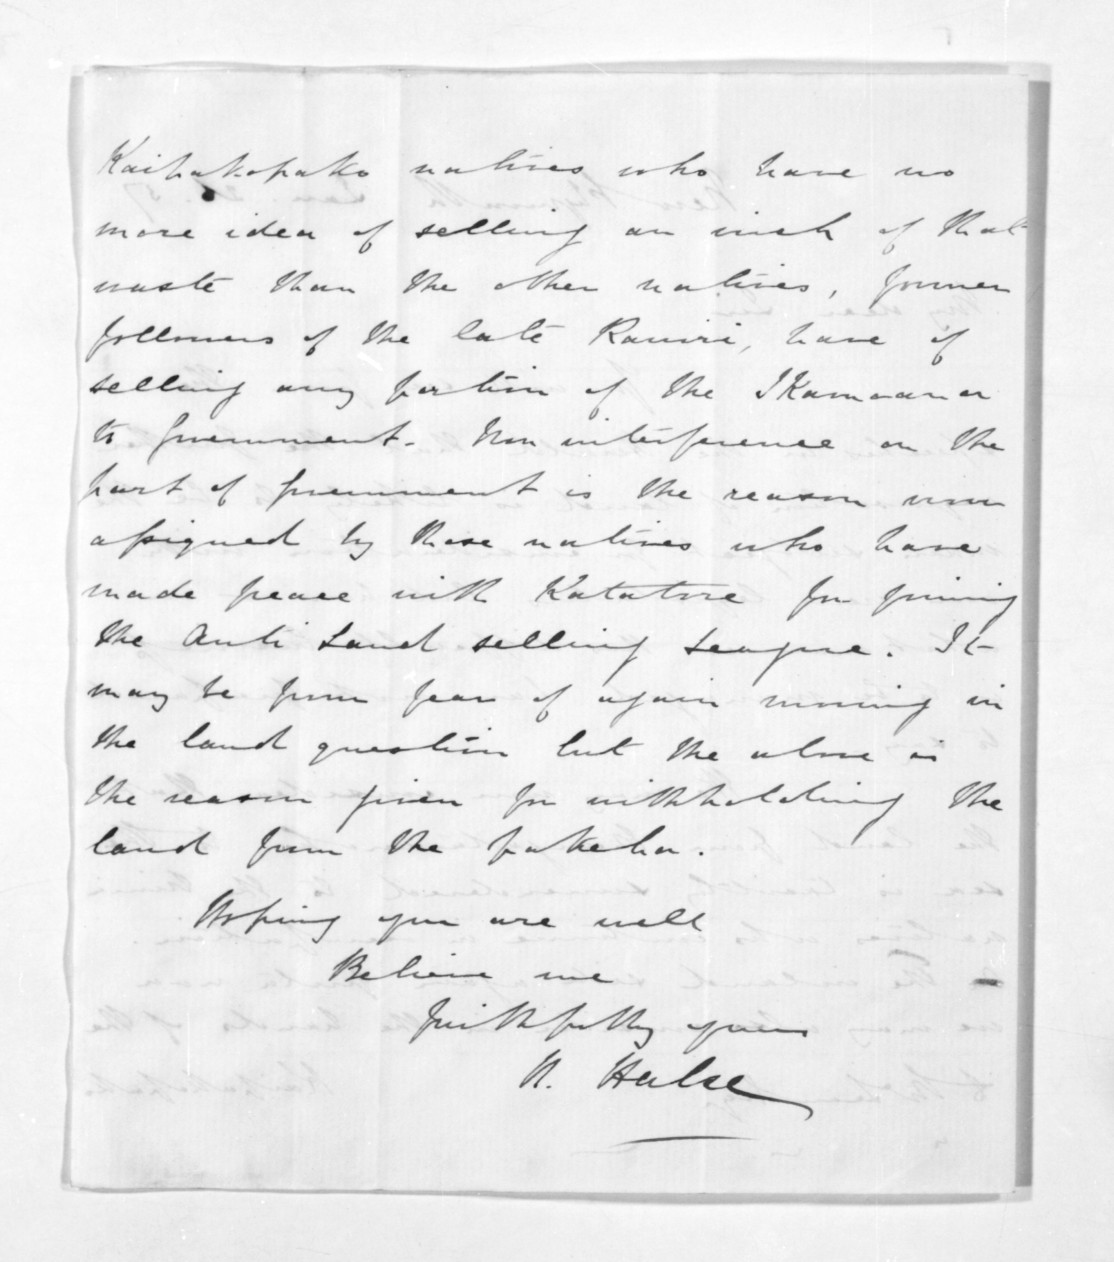 Kaipakopako natives who have no
more idea of selling an inch of that
waste than the other natives, former
followers of the late Rawiri, have of
selling any portion of the Ikamoana
to Government. Non interference on the
part of Government is the reason now
assigned by those natives who have
made peace with Katatore for joining
the Anti Land selling League. It
may be from fear of again moving in
the land question but the above is
the reason given for withholding the
land from the pakeha.
Hoping you are well
Believe me
Faithfully yours
H. Halse